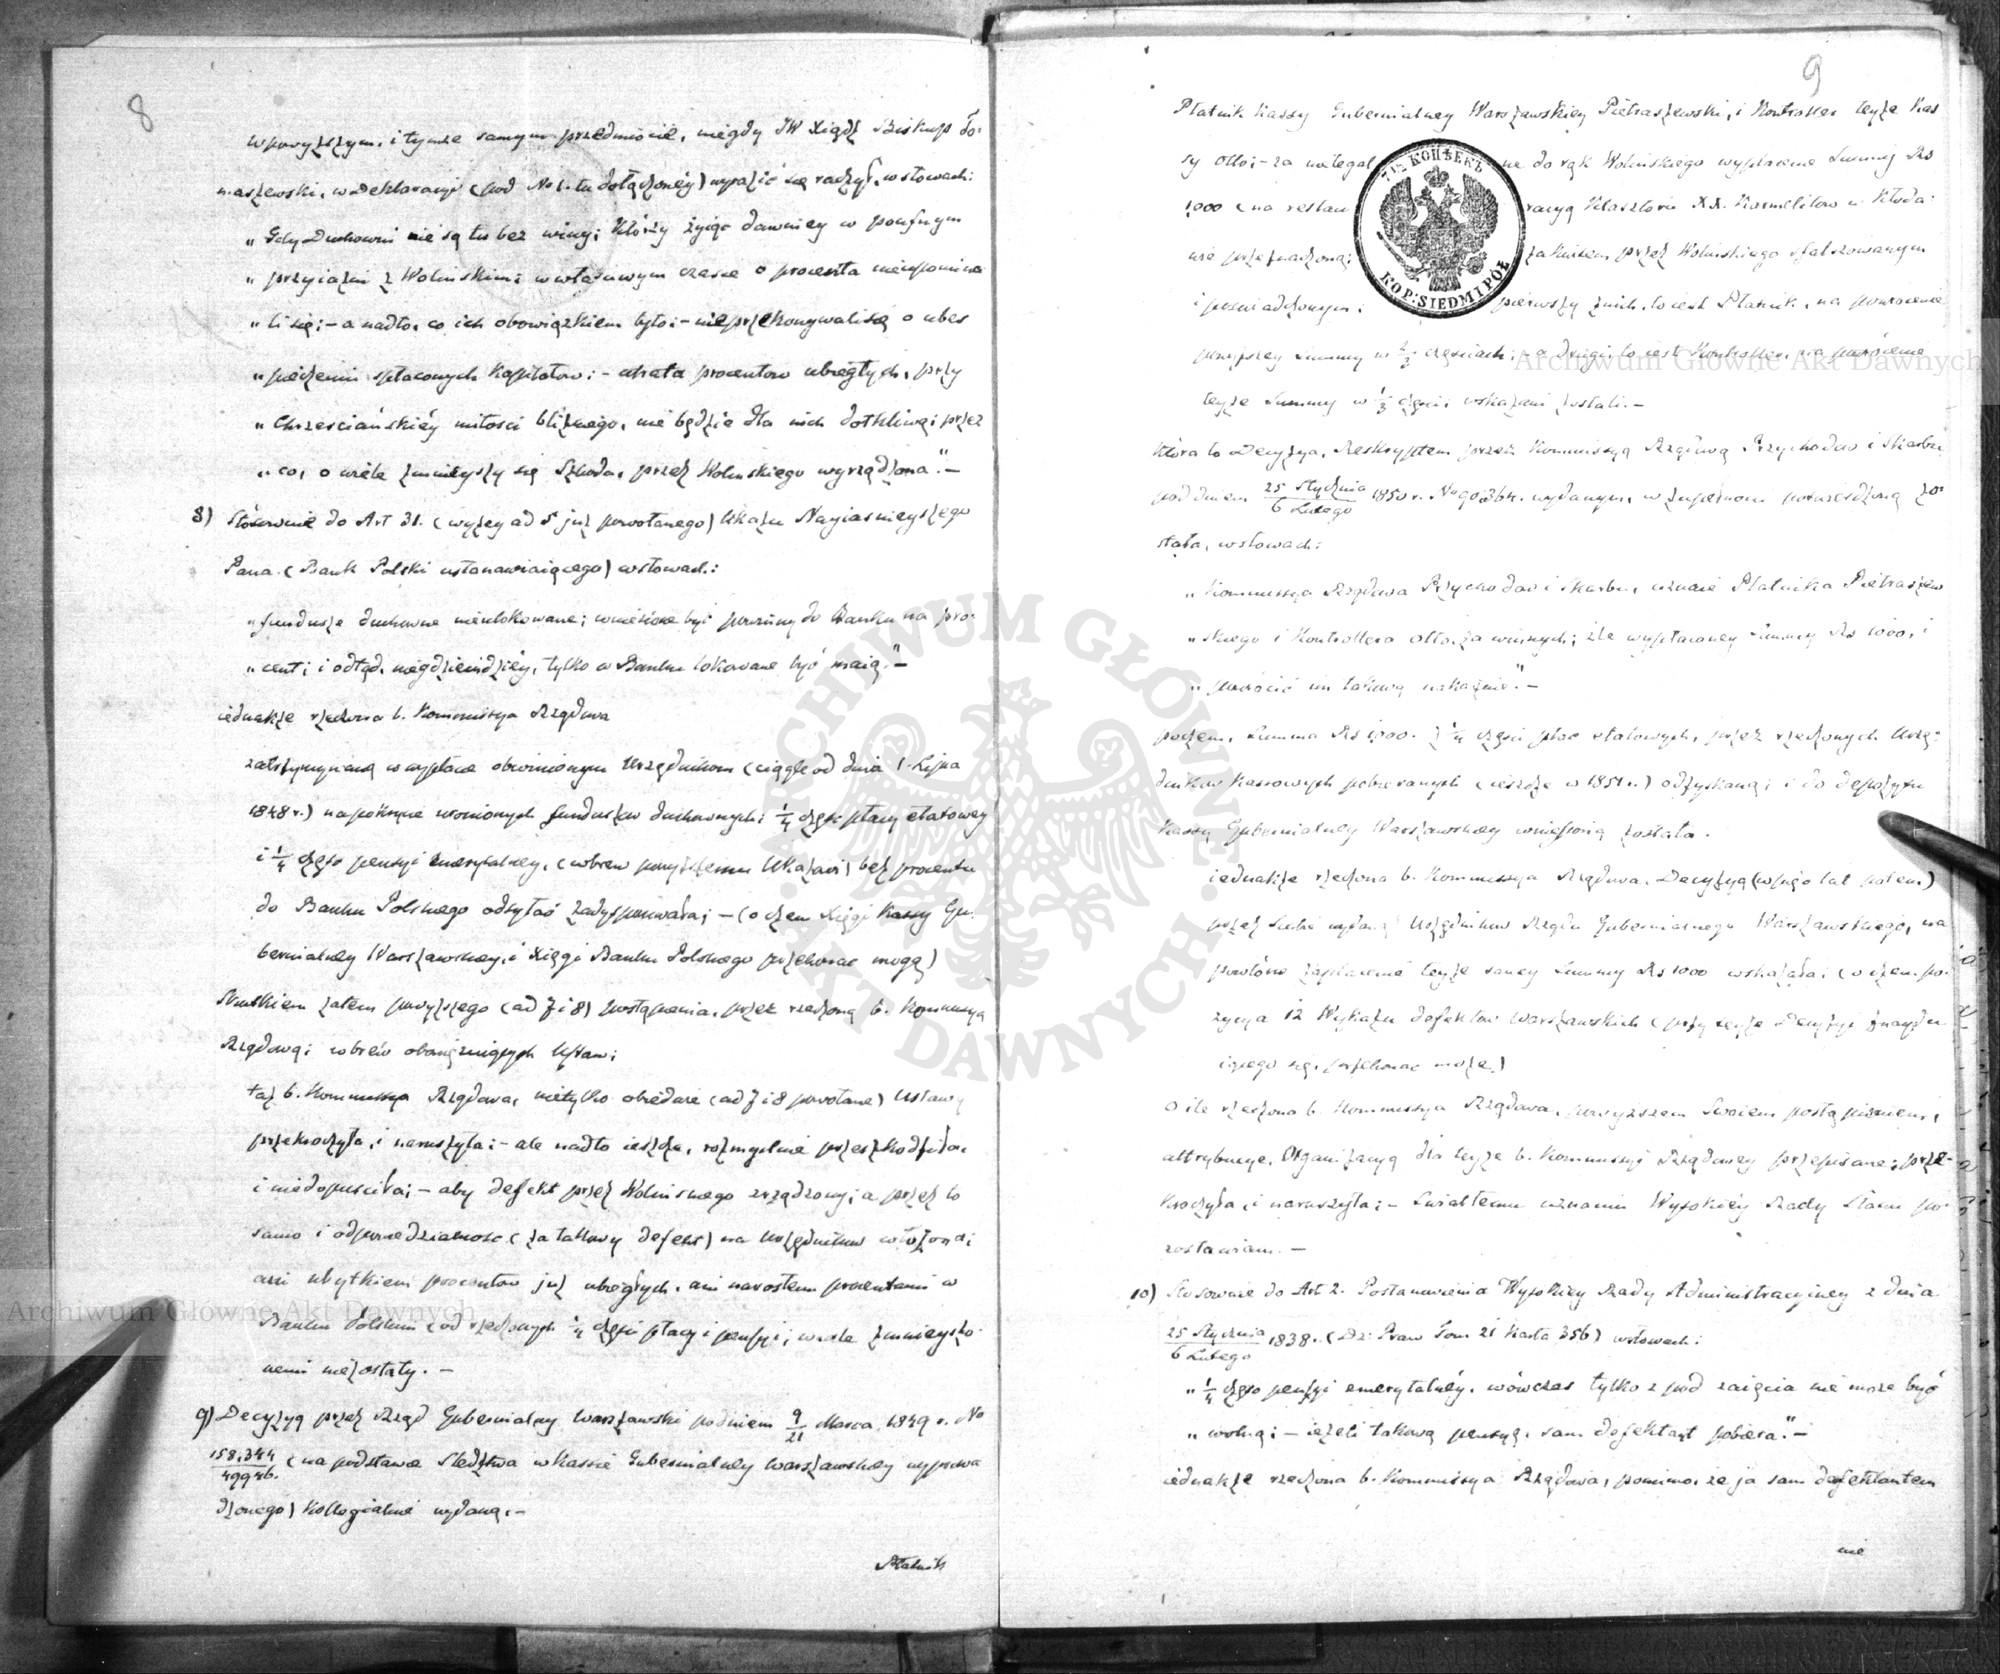 8
wpowyższym, i tymże samym przedmiocie, niegdy JW Xiądz Biskup To-
maszewski, w Deklaracyi (pod No 1. tu dołączoney) wyrazić się raczył, w słowach:
„Gdy Duchowni nie są tu bez winy; Którzy żyiąc dawniey w poufnym
„przyiaźni z Wolińskim; w właściwym czasie o procenta nieupomina
„li się; – a nadto, co ich obowiązkiem było; – nieprzekonywali się o ubez
„pieczeniu spłaconych Kapitałów; – utrata procentów ubiegłych, przy
„Chrześciańskiéy miłości bliźniego, nie będzie dla nich dotkliwą; przez
„co, o wiele zmnieyszy się Szkoda, przez Wolinskiego wyrządzona." –
8) Stósownie do Art 31. (wyżey ad 5 już powołanego) Ukazu Nayiaśnieyszego
Pana (Bank Polski ustanawiaiącego) w słowach:
„fundusze duchowne nieulokowane; wniesione być powinny do Banku na pro-
„cent; i odtąd, nigdzieindziéy, tylko w Banku lokowane być maią." –
iednakże rzeczona b. Kommissya Rządowa
zatrzymywaną w wypłacie obwinionym Urzędnikom (ciągle od dnia 1. Lipca
1848 r.) na pokrycie uronionych funduszów duchownych; ¼ część płacy etatowey
i ¼ część pensyi emerytalney, (wbrew powyższemu Ukazowi) bez procentu
do Banku Polskiego odsyłać zadysponowała; – (o czem Xięgi Kassy Gu-
bernialney Warszawskey, i Xięgi Banku Polskiego przekonać mogą)
Skutkiem zatem powyższego (ad 7 i 8) postąpienia, przez rzeczoną b. Kommissyą
Rządową; wbrew obowiązuiących Ustaw;
taż b. Kommissya Rządowa, nietylko obiedwie (ad 7 i 8 powołane) Ustawy
przekroczyła, i naruszyła; – ale nadto ieszcze, rozmyślnie przeszkodziła,
i niedopuściła; – aby defekt przez Wolińskiego zrządzony; a przez to
samo i odpowiedzialność (za takowy defekt) na Urzędników włożona;
ani ubytkiem procentów już ubiegłych, ani narostem procentami w
Banku Polskim (od rzeczonych ¼ części płacy i pensyi; wcale zmnieyszo-
nemi niezostały. –
9) Decyzyą przez Rząd Gubernialny Warszawski pod dniem 9/21 Marca 1849 r. No
158,344/49946. (na podstawie Śledztwa w Kassie Gubernialney Warszawskey wyprowa
dzonego) Kollegialnie wydaną, –
Płatnik
9
Płatnik Kassy Gubernialney Warszawskiey Pietraszewski, i Kontroller teyże Kas
sy Otto; – za nielegal ne do rąk Wolińskiego wypłacenie Summy Rs
1,000 (na restau racyą Klasztoru XX. Karmelitów w Kłoda-
wie przeznaczoną; zakwitem przez Wolińskiego sfałszowanym
i poświadczonym; pierwszy z nich, to iest Płatnik, na powrócenie
powyższey Summy w ⅔ częściach; – a drugi, to iest Kontroller, na powrócenie
teyże Summy w ⅓ części wskazani zostali. –
7½ КОПѢЕКЪ
KOP: SIEDM I PÓŁ
Która to Decyzya, Reskryptem przez Kommissyą Rządową Przychodów i Skarbu
pod dniem 25 Stycznia/6 Lutego 1850 r. No 90,364. wydanym, w zupełności potwierdzoną zo-
stała, w słowach:
„Kommissya Rządowa Przychodów i Skarbu, uznaie Płatnika Pietraszew
„skiego i Kontrollera Otto, za winnych; źle wypłaconey Summy Rs 1000, i
„powrócić im takową nakazuie." –
poczem, Summa Rs 1,000. z ¼ części płac etatowych, przez rzeczonych Urzę-
dników Kassowych pobieranych (ieszcze w 1851 r.) odzyskaną; i do depozytu
Kassy Gubernialney Warszawskey wniesioną została.
iednakże rzeczona b. Kommissya Rządowa, Decyzyą (w lat potem)
przez Siebie wydaną Urzędników Rządu Gubernialnego Warszawskiego, na
powtórne zapłacenie teyże samey Summy Rs 1000 wskazała; (o czem po-
zycya 12 Wykazu defektów Warszawskich (przy teyże Decyzyi znaydu
iącego się, przekonać może)
O ile rzeczona b. Kommissya Rządowa, powyższem Swoiem postąpieniem,
attrybucye, Organizacyą dla teyże b. Kommissyi Rządowey przepisane; prze-
kroczyła, i naruszyła; – Światłemu uznaniu Wysokiéy Rady Stanu po-
zostawiam. –
10) Stosownie do Art 2. Postanowienia Wysokiey Rady Administracyiney z dnia
25 Stycznia/6 Lutego 1838 r. (Dz: Praw Tom 21 Karta 356) w słowach:
„¼ część pensyi emerytalnéy, wówczas tylko z pod zaięcia nie może być
„wolną; – ieżeli takową pensyą, sam defektant pobiera." –
iednakże rzeczona b. Kommissya Rządowa, pomimo, że ja sam defektantem
nie
ARCHIWUM GŁÓWNE AKT DAWNYCH
Archiwum Główne Akt Dawnych
Archiwum Główne Akt Dawnych